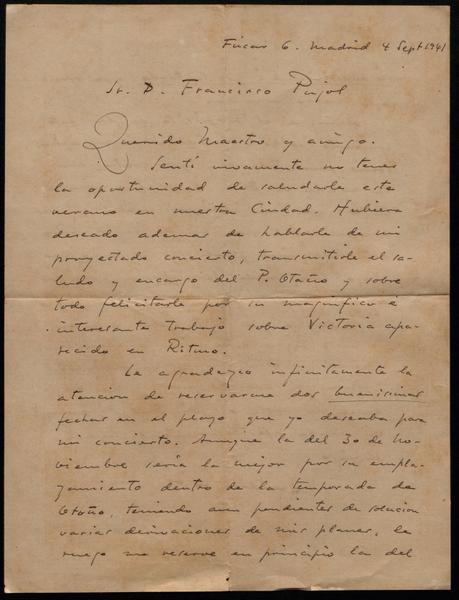 Fúcar 6. Madrid 4 Sept 1941
Sr. D. Francisco Pujol
Querido Maestro y amigo.
Sentí vivamente no tener
la oportunidad de saludarle este
verano en nuestra Ciudad. Hubiera
deseado ademas de hablarle de mi
proyectado concierto, transmitirle el sa-
ludo y encargo del P. Otaño y sobre
todo felicitarle por su magnífico é
interesante trabajo sobre Victoria apa-
recido en Ritmo.
Le agradezco infinitamente la
atencion de reservarme dos buenisimas
fechas en el plazo que yo deseaba para
mi concierto. Aunque la del 30 de No-
viembre sería la mejor por su empla-
zamiento dentro de la temporada de
Otoño, teniendo aun pendientes de solucion
varias derivaciones de mis planes, le
ruego me reserve en principio la del